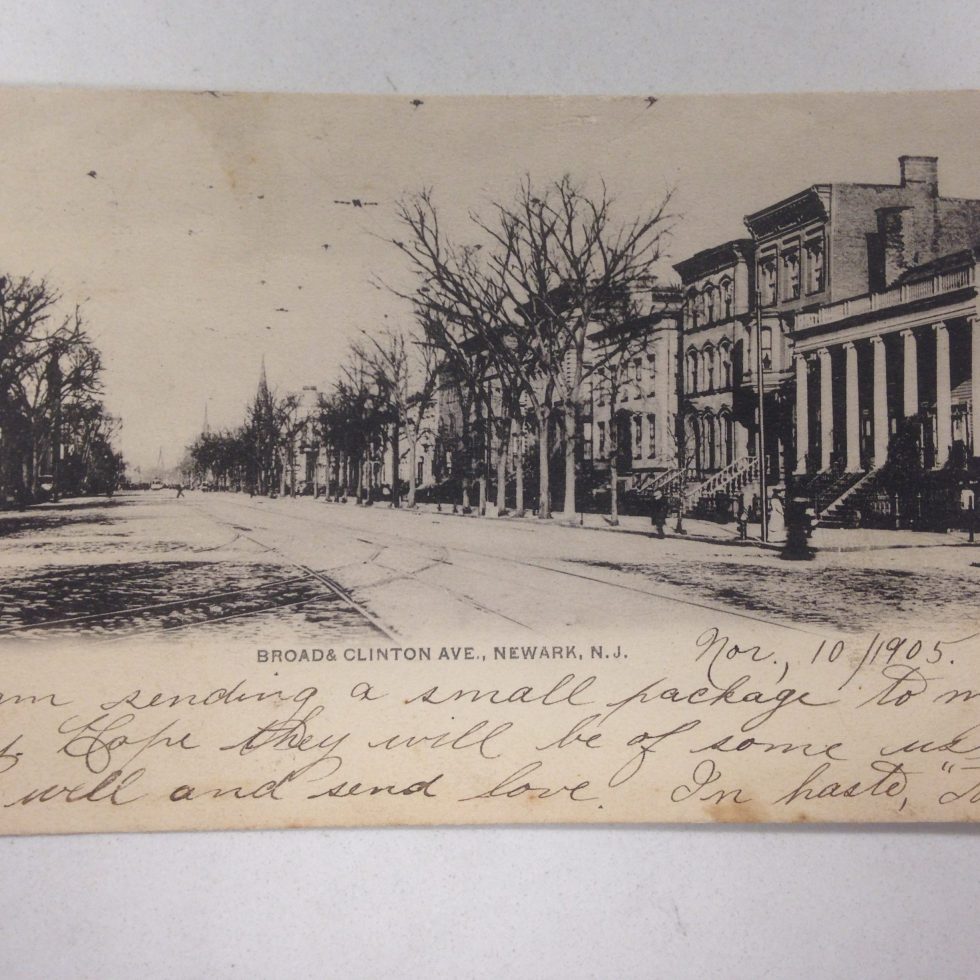 BROAD & CLINTON AVE., NEWARK, N.J.
Nov., 10/1905.
am sending a small package to
Hope they will be of some
well and send love. In haste,